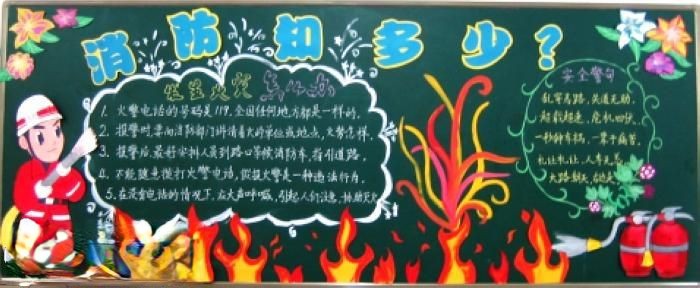 消防知多少?
发生火灾怎么办
1. 火警电话的号码是119,全国任何地方都是一样的。
2. 报警时,要向消防部门讲清着火的单位或地点,火势怎样。
3. 报警后,最好安排人员到路口等候消防车,指引道路。
4. 不能随意拨打火警电话,假报火警是一种违法行为。
5. 在没有电话的情况下,应大声呼喊,引起人们注意,协助灭火
安全警句
乱穿马路,
超载超速,危机四伏。
一秒钟车祸,一辈子痛苦。
礼让礼让,人车无恙
大路朝天,